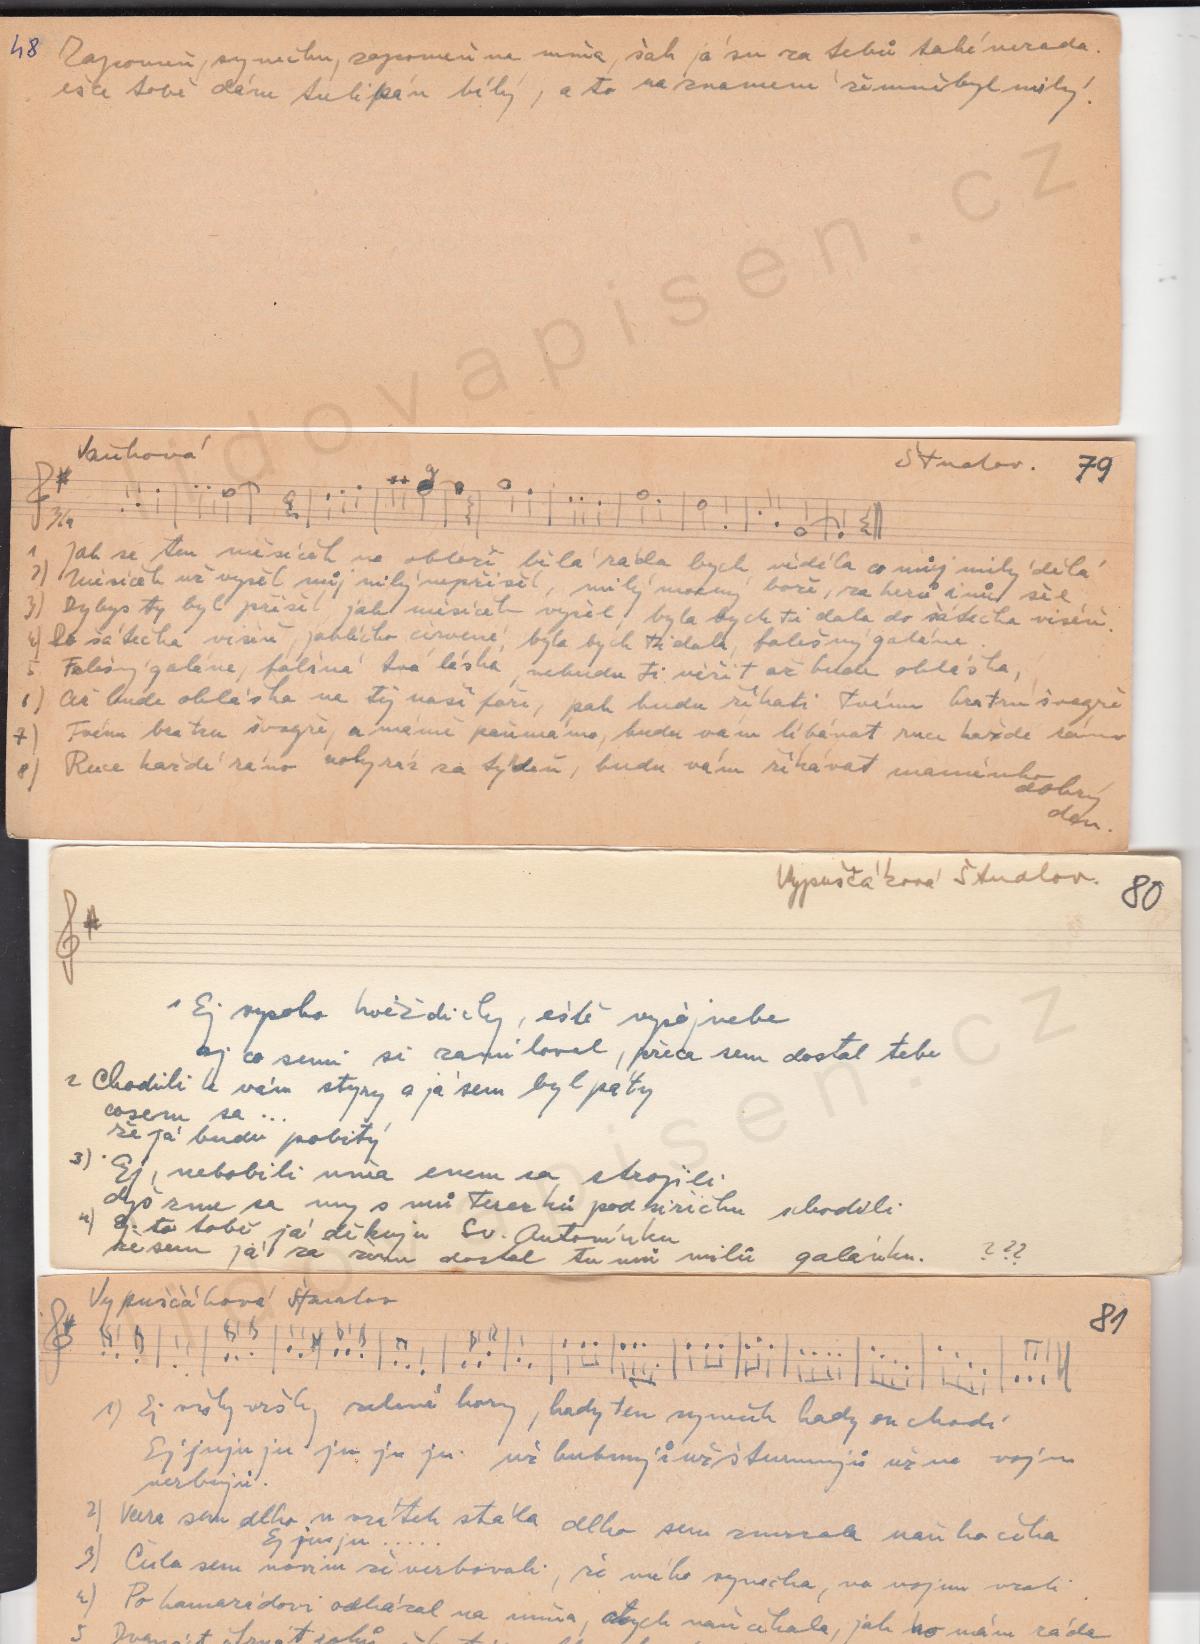 48 Zapomeň, synečku, zapomeň na mňa, šak já su za tebú také nerada.
ešče tobě dám tulipán bílý, a to na znamení žes mně byl milý!
Vaňhová Študlov. 79
3/4
1 Jak se ten měsíček na obloze bělá ráda bych věděla co můj milý dělá
2) Měsíček už vyšel můj milý nepřišel, milý mocný bože, za kerú inú šel
3) Dybys ty byl přišel jak měsíček vyšel, byla bych ti dala do šátečka višeň.
4) Do šátečka višeň, jablíčko červené, byla bych ti dala, falešný galáne.
5 Falešný galáne, falšná tvá láska, nebudu ti věřit až bude ohláška,
6) Až bude ohláška na tej naší faře, pak budu říkati tvému bratru švagře
7) Tvému bratru švagře, a mámě panímámo, budu vám líbávat ruce každé ráno
8) Ruce každé ráno nohy ráz za týdeň, budu vám říkávat maměnko dobrý
den.
Vypuščáková Študlov. 80
1 Ej vysoko hvězdičky, eště vyšéj nebe
ej co semi si zamiloval, přeca sem dostal tebe
2 Chodili k vám štyry a já sem byl páty
cosem sa ...
že já budu pobitý
3) Ej, nebobili mňa enem sa strojili
dyž zme sa my s mú Terezkú pod širičku schodili
4) Ej to tobě já děkuju Sv. Antomínku
že sem já za ženu dostal tu mú milú galánku. ???
Vypuščáková Študlov 81
1) Ej vršky vršky zelené hory, kady ten syneček kady on chodí
Ej juju ju ju ju ju už bubnujú už šturmujú už na vojnu
verbujú.
2) Včera sem dlho u vrátek stála dlho sem zmrzala naň ho čeka
Ej juju .....
3) Čula sem novin že verbovali, že mého synečka, na vojnu vzali
4) Po kamarádovi odkázal na mňa, abych naň čekala, jak ho mám ráda
5